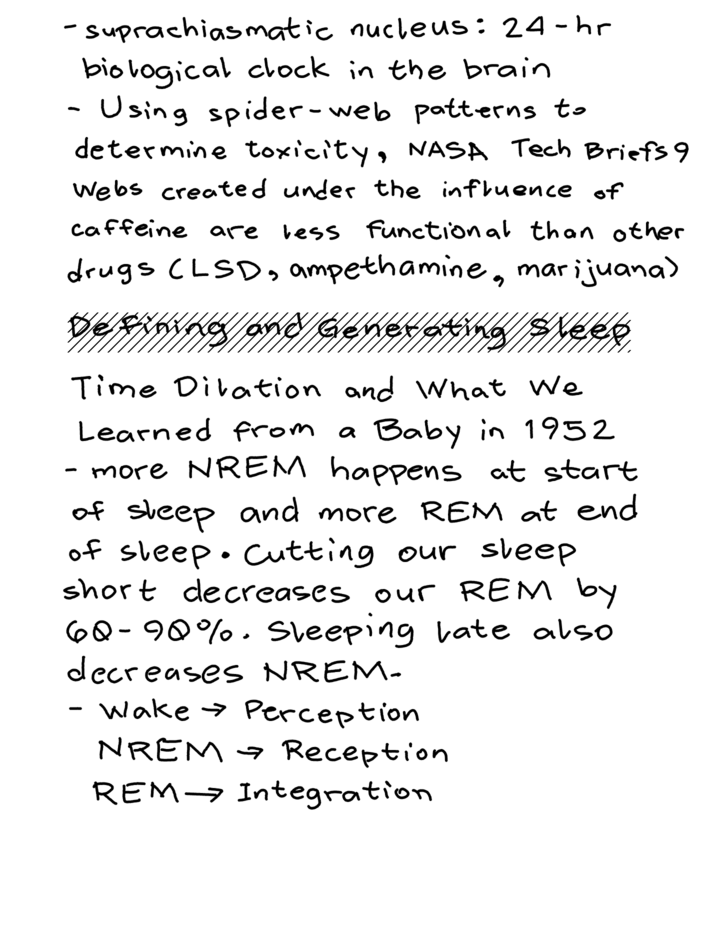 - suprachiasmatic nucleus: 24-hr
biological clock in the brain
- Using spider-web patterns to
determine toxicity, NASA Tech Briefs 9
Webs created under the influence of
caffeine are less functional than other
drugs (LSD, ampethamine, marijuana)
Defining and Generating Sleep
Time Dilation and What We
Learned from a Baby in 1952
- more NREM happens at start
of sleep and more REM at end
of sleep. Cutting our sleep
short decreases our REM by
60-90%. Sleeping late also
decreases NREM.
- Wake → Perception
NREM → Reception
REM → Integration